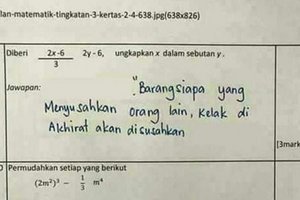 lan-matematik-tingkatan-3-kertas-2-4-638.jpg(638x826)
Diberi 2x-6/3 2y - 6, ungkapkan x dalam sebutan y.
Jawapan:
"Barangsiapa yang
Menyusahkan orang lain, kelak di
Akhirat akan disusahkan
[3mark
Permudahkan setiap yang berikut
(2m²)³ - 1/3 m⁴